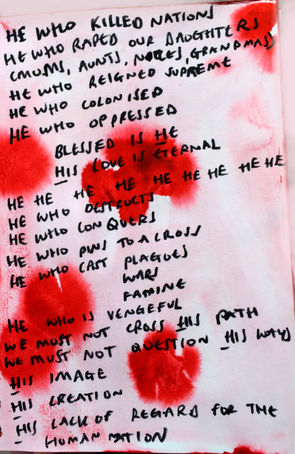 HE WHO KILLED NATIONS
HE WHO RAPED OUR DAUGHTERS
(MUMS, AUNTS, NIECES, GRANDMAS)
HE WHO REIGNED SUPREME
HE WHO COLONISED
HE WHO OPPRESSED
BLESSED IS HE
HIS LOVE IS ETERNAL
HE HE HE HE HE HE HE HE
HE WHO DESTRUCTS
HE WHO CONQUERS
HE WHO PINS TO A CROSS
HE WHO CAST PLAGUES
WARS
FAMINE
HE WHO IS VENGEFUL
WE MUST NOT CROSS HIS PATH
WE MUST NOT QUESTION HIS WAYS
HIS IMAGE
HIS CREATION
HIS LACK OF REGARD FOR THE
HUMAN NATION